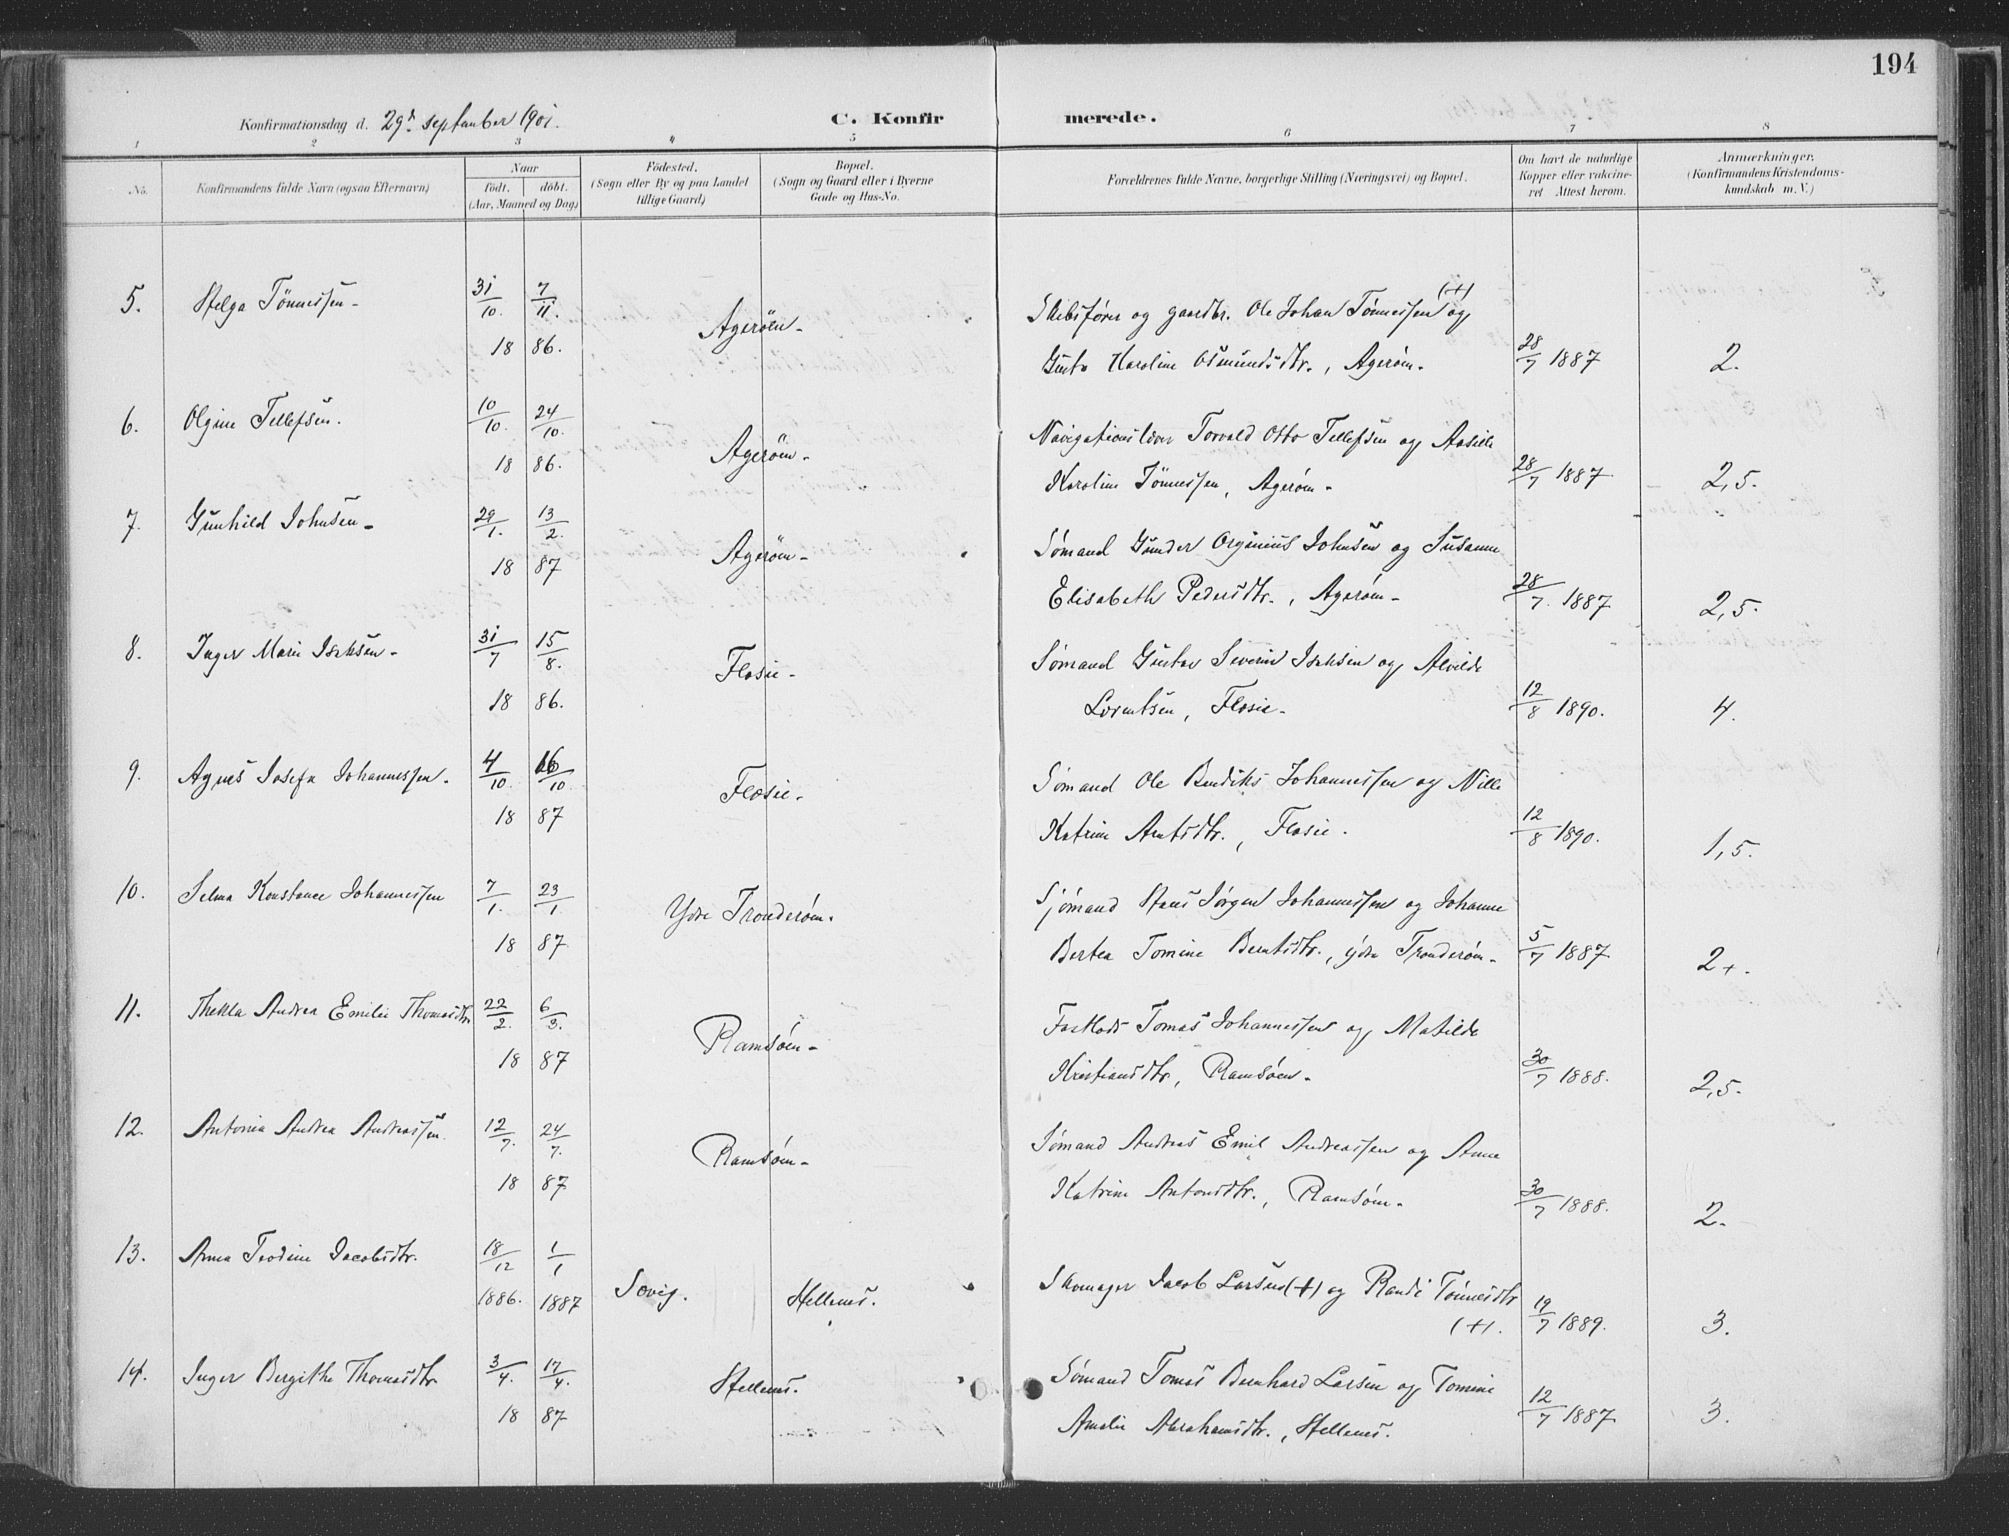 194
Konfirmationsdag d. 29de september 1901.
C. Konfir merede.
1 2 3 4 5 6 7 8
No.
Konfirmandens fulde Navn (ogsaa Efternavn)
Naar
født. døbt.
(Aar, Maaned og Dag)
Födested.
(Sogn eller By og paa Landet
tillige Gaard)
Bopæl.
(Sogn og Gaard eller i Byerne
Gade og Hus-No.
Forældrenes fulde Navne, borgerlige Stilling (Næringsvei) og Bopæl.
Om havt de naturlige
Kopper eller vakcine-
ret Attest herom.
Anmærkninger.
(Konfirmandens Kristendoms-
kundskab m. V.)
5. Helga Tönnessen - 31/10. 7/11. 18 86. Agerøen -
Skibsfører og gaardbr. Ole Johan Tønnessen (+) og
Karoline Osmundsdtr., Agerøen. 28/7 1887 2.
6. Olgine Tellefsen. 10/10. 24/10. 18 86. Agerøen -
Navigationslærer Torvald Otto Tellefsen og
Karoline Tönnessen, Agerøen - 28/7 1887 2,5.
7. Gunhild Johnsen - 29/1. 13/2. 18 87 Agerøen -
Sømand Gunder Johnsen og Susanne
Elisabeth Pedersdtr., Agerøen - 28/7. 1887 2,5.
8. Inger Marie Isaksen - 31/7 15/8. 18 86. Flosie -
Sømand Gustav Severin Isaksen og Alvilde
Lorentsen, Flosie - 12/8 1890. 4.
9. Agnes Josefa Johannessen. 4/10. 16/10. 18 87 Flosie.
Sømand Ole Bendiks Johannessen og Nille
Katrine Arntsdtr., Flosie. 12/8 1890. 1,5.
10. Selma Konstance Johannessen 7/1. 23/1 18 87 Ydre Tronderøen.
Sjømand Hans Jørgen Johannessen og Johanne
Bertea Tomine Berntsdtr., ydre Tronderøen - 5/7 1887 2+.
11. Thekla Andrea Emilie Thomasdtr. 22/2. 6/3. 18 87 Ramsøen -
Tomas Johannessen og Matilde
Kristiansdtr, Ramsøen. 30/7 1888. 2,5.
12. Antonia Andrea Andreassen. 12/7. 24/7. 18 87 Ramsøen -
Sømand Andreas Emil Andreassen og Anne
Katrine Antonsdtr., Ramsøen. 30/7 1888. 2.
13. Anna Teodine Jacobsdtr. 18/12 1/1 1886. 1887 Søvig. Hellenes.
Skomager Jacob Larsen (+) og Randi Tønnesdtr
(+). 19/7 1889. 3.
14. Inger Bergithe Thomasdtr 3/4. 17/4. 18 87 Hellenes.
Sømand Tomas Bernhard Larsen og Tomine
Amalie Abrahamsdtr., Hellenes. 12/7 1887 3.